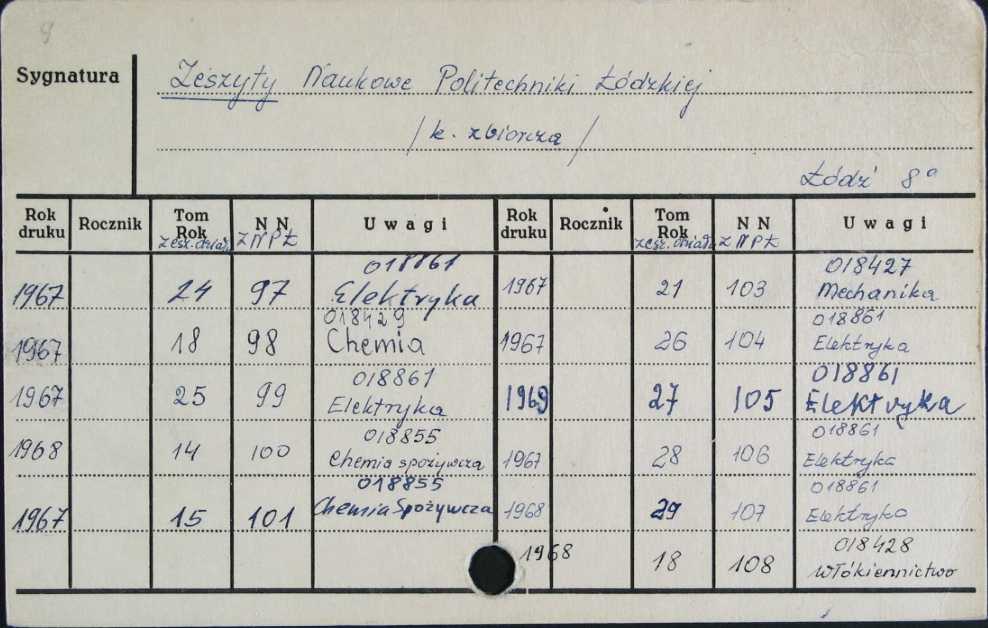 9
Sygnatura
Zeszyty Naukowe Politechniki Łódzkiej
/k. zbiorcza/
Łódź 8°
Rok druku Rocznik Tom Rok zesz. działu N N Z N P Ł Uwagi Rok druku Rocznik Tom Rok zesz. działu N N Z N P Ł Uwagi
1967 24 97 018861 Elektryka 1967 21 103 018427 Mechanika
1967 18 98 018429 Chemia 1967 26 104 018861 Elektryka
1967 25 99 018861 Elektryka 1969 27 105 018861 Elektryka
1968 14 100 018855 Chemia spożywcza 1967 28 106 018861 Elektryka
1967 15 101 018855 Chemia Spożywcza 1968 29 107 018861 Elektryka
1968 18 108 018428 Włókiennictwo